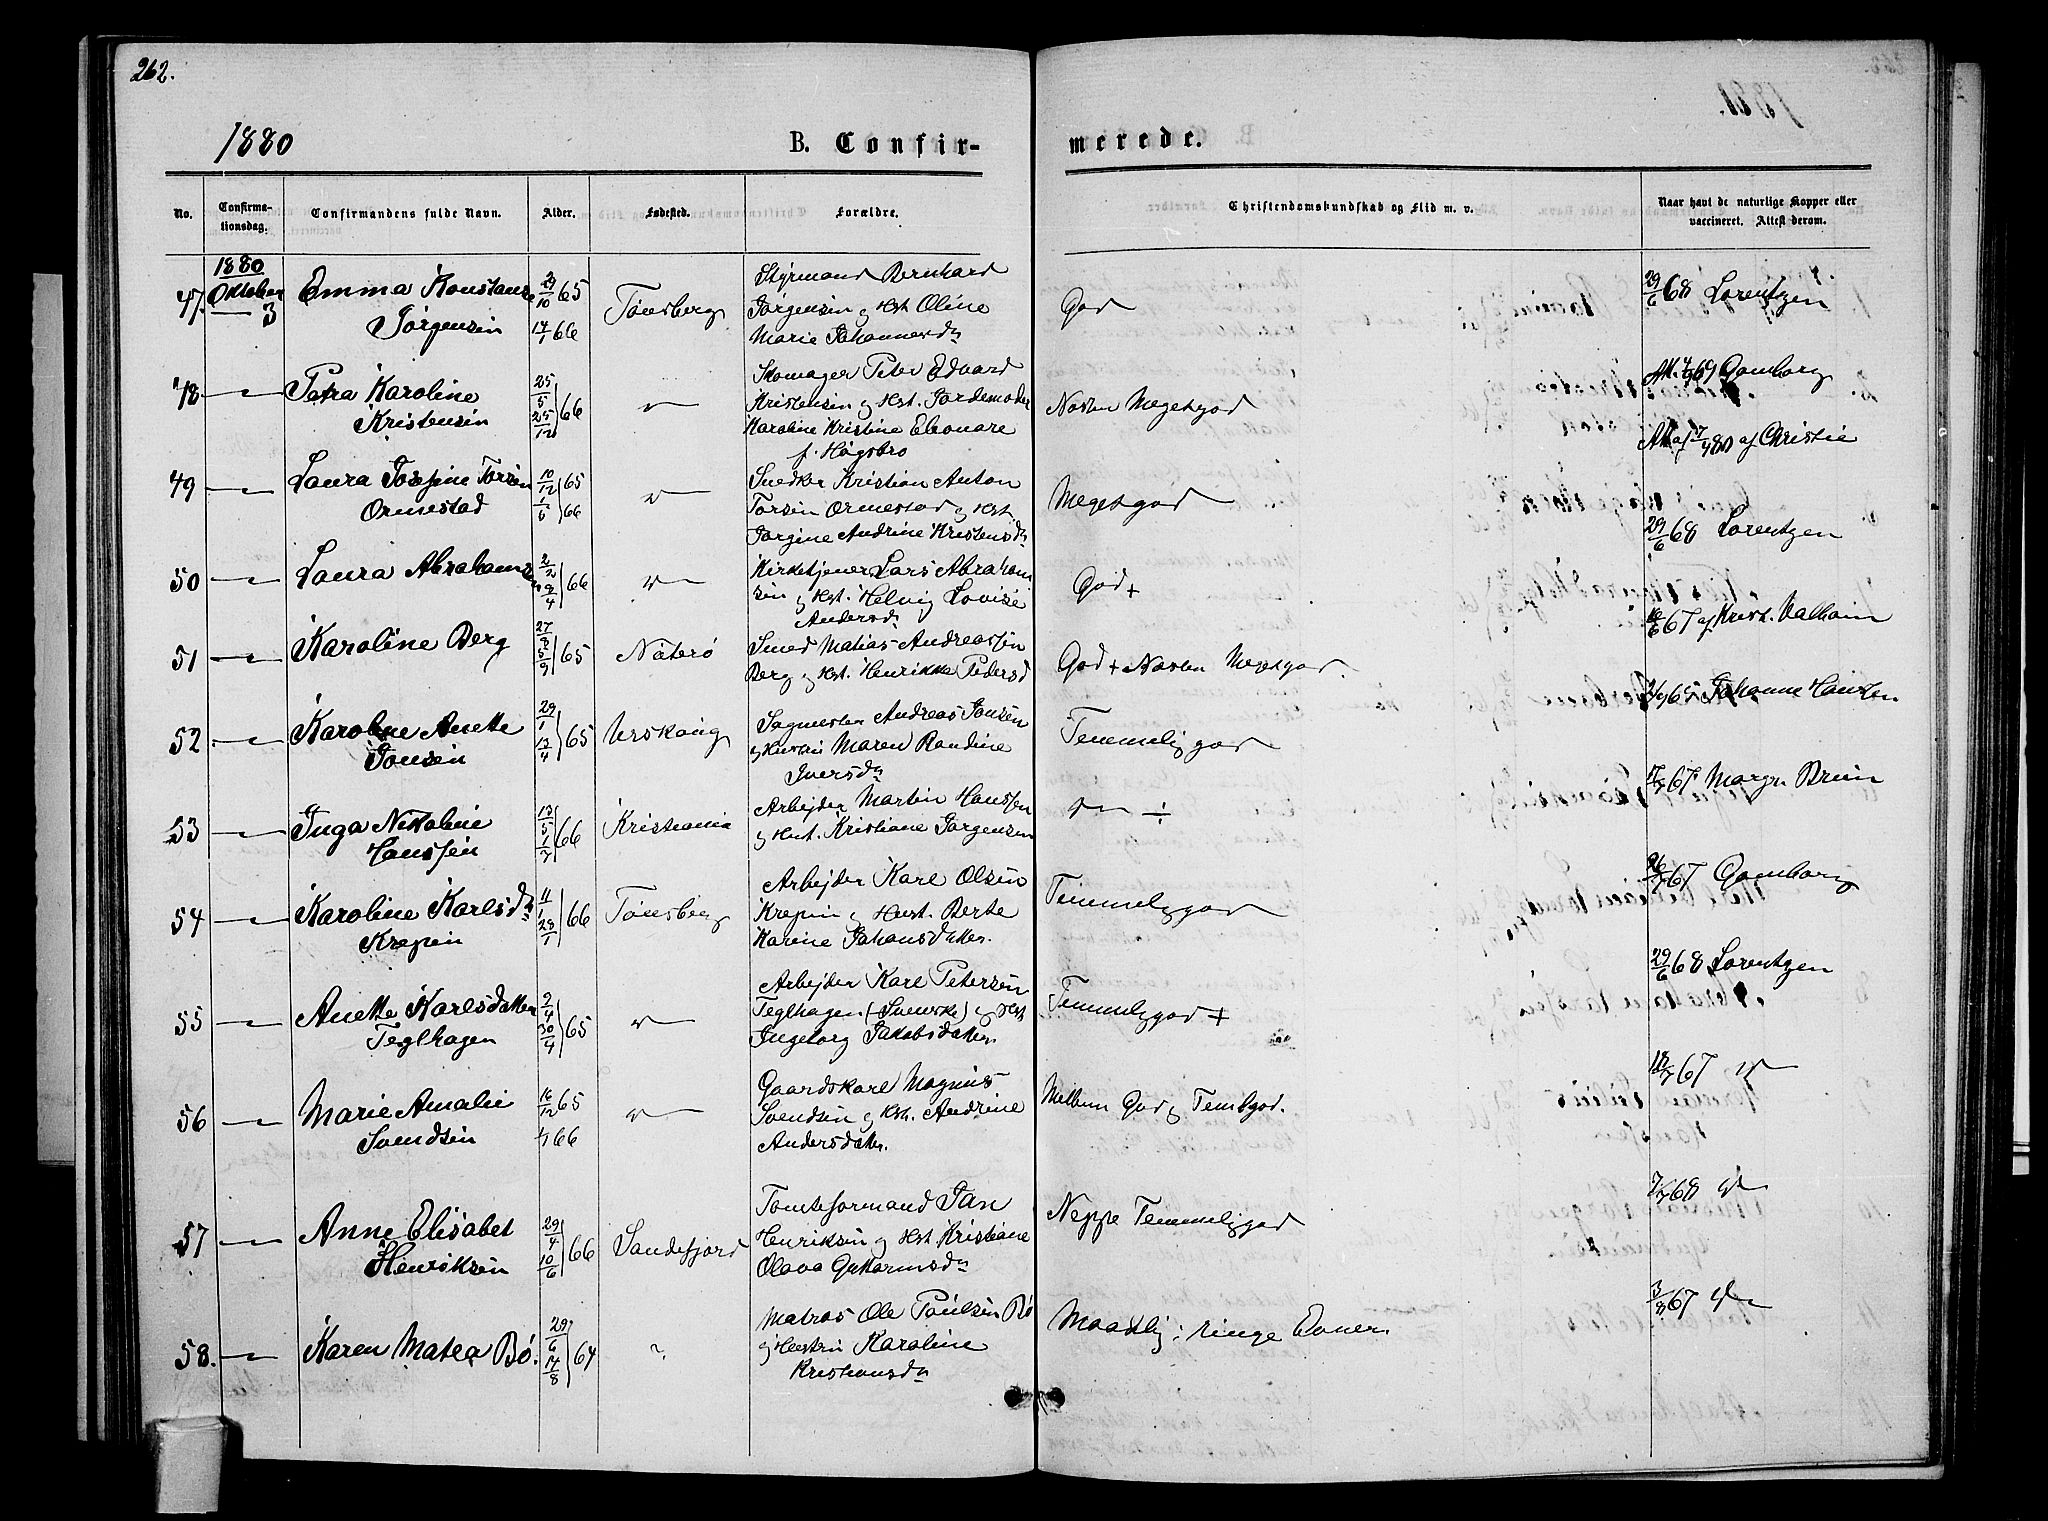 262.
1880
B. Confir-
merede.
No.
Confirma-
tionsdag.
Confirmandens fulde Navn.
Alder.
Fødested.
Forældre.
Christendomskundskab og Flid m. v.
Naar havt de naturlige Kopper eller
vaccineret. Attest derom.
1880
Oktober
3
47. Emma Konstanse
Jørgensen
29/10 65
14/1 66
Tønsberg
Styrmand Bernhard
Jørgensen og Hst. Oline
Marie Johannesdr
God
29/6 68 Lorentzen
48 Petra Karoline
Kristensen
25/5
25/12 66
Skomager Peter Edvard
Kristensen og Hst. Jordemoder
Karoline Kristine Eleonare
f. Høgsbro
Næsten Megetgod
Gamborg
49 Laura Josefine Torsen
Ormestad
10/12 65
1/5 66
Snedker Kristian Anton
Torsen Ormestad og Hst
Jørgine Andrine Kristensdr
Megetgod
Att. af 7/4 80 af Christie
50 Laura Abrahamsen
2/2
2/4 66
Kirketjener Lars Abraham
sen og Hst. Helvig Lovise
Andersdr
God +
29/6 68 Lorentzen
51 Karoline Berg
27/8
5/9 65
Nøterø
Smed Matias Andreassen
Berg og Hst. Henrikke Pedersd
God + Næsten Megetgod.
67 af Krist. Valham
52. Karoline Anette
Jonsen
29/1
17/4 65
Urskoug
Sagmester Andreas Jonsen
og Hustru Maren Randine
Iversdr
Temmeliggod
65 Johanne Hansen
53 Inga Nikoline
Hanssen
13/5
1/7 66
Kristiania
Arbejder Martin Hanssen
og Hst. Kristiane Jørgensen
÷
17/7 67 Margr. Bruun
54 Karoline Karlsdr
Krepin
11/1
28/1 66
Tønsberg
Arbejder Karl Olsen
Krepin og Hust. Berte
Karine Johansdatter.
Temmeliggod
26/7 67 Gamborg
55 Anette Karlsdatter
Teglhagen
2/4
30/4 65
Arbejder Karl Petersen
Teglhagen (Svensk) og Hst
Ingeborg Jakobsdatter
Temmeliggod +
29/6 68 Lorentzen
56 Marie Amalie
Svendsen
16/12 65
66
Gaardskarl Magnus
Svendsen og Hst. Andrine
Andersdatter.
Mellem God og Temlgod.
18/7 67
57 Anne Elisabet
Henriksen
29/4
10/6 66
Sandefjord
Tomteformand Jan
Henriksen og Hst Kristiane
Olava Guttormsdr
Neppe Temmeliggod
7/7 68
58. Karen Matea Bø.
29/6
14/8 64
Matros Ole Paulsen Bø
og Hustru Karoline
Kristiansdr
Maadelig; ringe Evner.
3/8 67